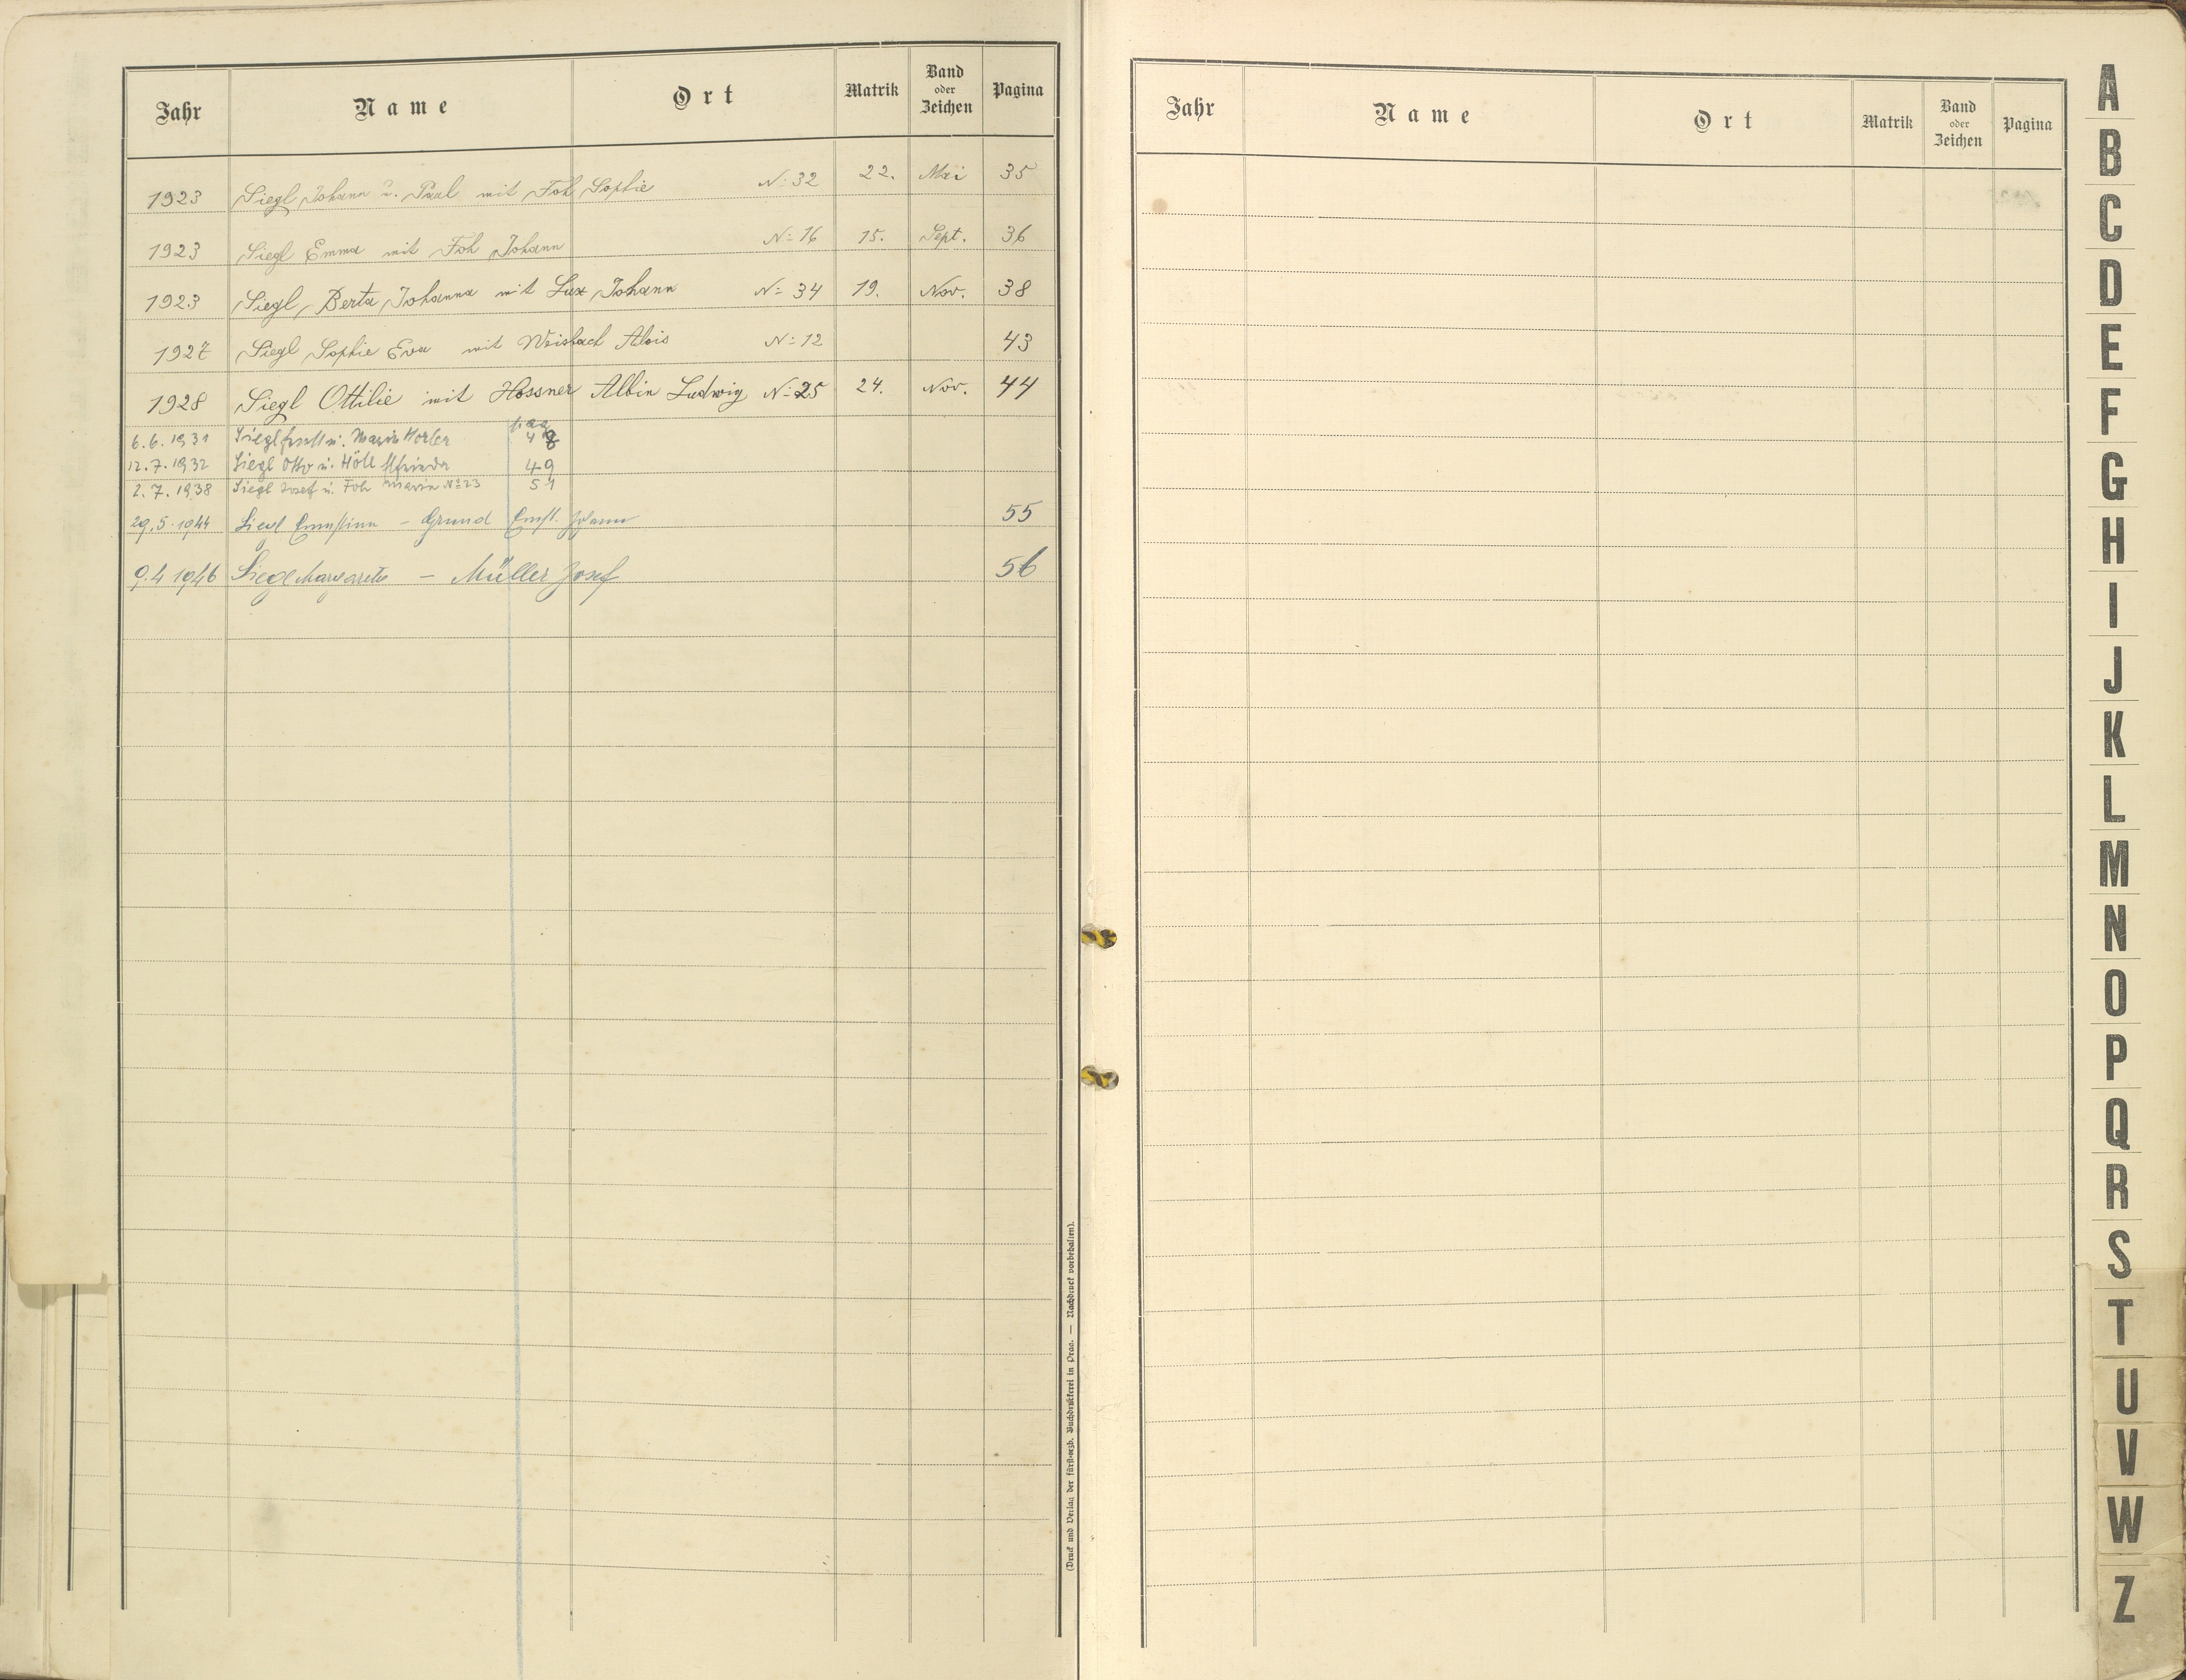 Jahr Name Ort Matrik Band oder Zeichen Pagina
1923 Siegl Johann u. Paul mit Foh Sophie N: 32 22. Mai 35
1923 Siegl Emma mit Foh Johann N: 16 15. Sept. 36
1923 Siegl Berta Johanna mit Lux Johann N: 34 19. Nov. 38
1927 Siegl Sophie Eva mit Weisbach Alois N: 12 43
1928 Siegl Ottilie mit Hossner Albin Ludwig N: 25 24. Nov. 44
6.6.1931 Siegl u. Maria Horler 48
12.7.1932 Siegl Otto u. Höll Elfrieda 49
2.7.1938 Siegl Josef u. Foh Maria No 23 51
29.5.1944 Siegl Ernestine – Grund Ernst. Johann 55
9.4 1946 Siegl Margarete – Müller Josef 56
(Druck und Verlag der fürst-erzb. Buchdruckerei in Prag. — Nachdruck vorbehalten).
Jahr Name Ort Matrik Band oder Zeichen Pagina
A
B
C
D
E
F
G
H
I
J
K
L
M
N
O
P
Q
R
S
T
U
V
W
Z